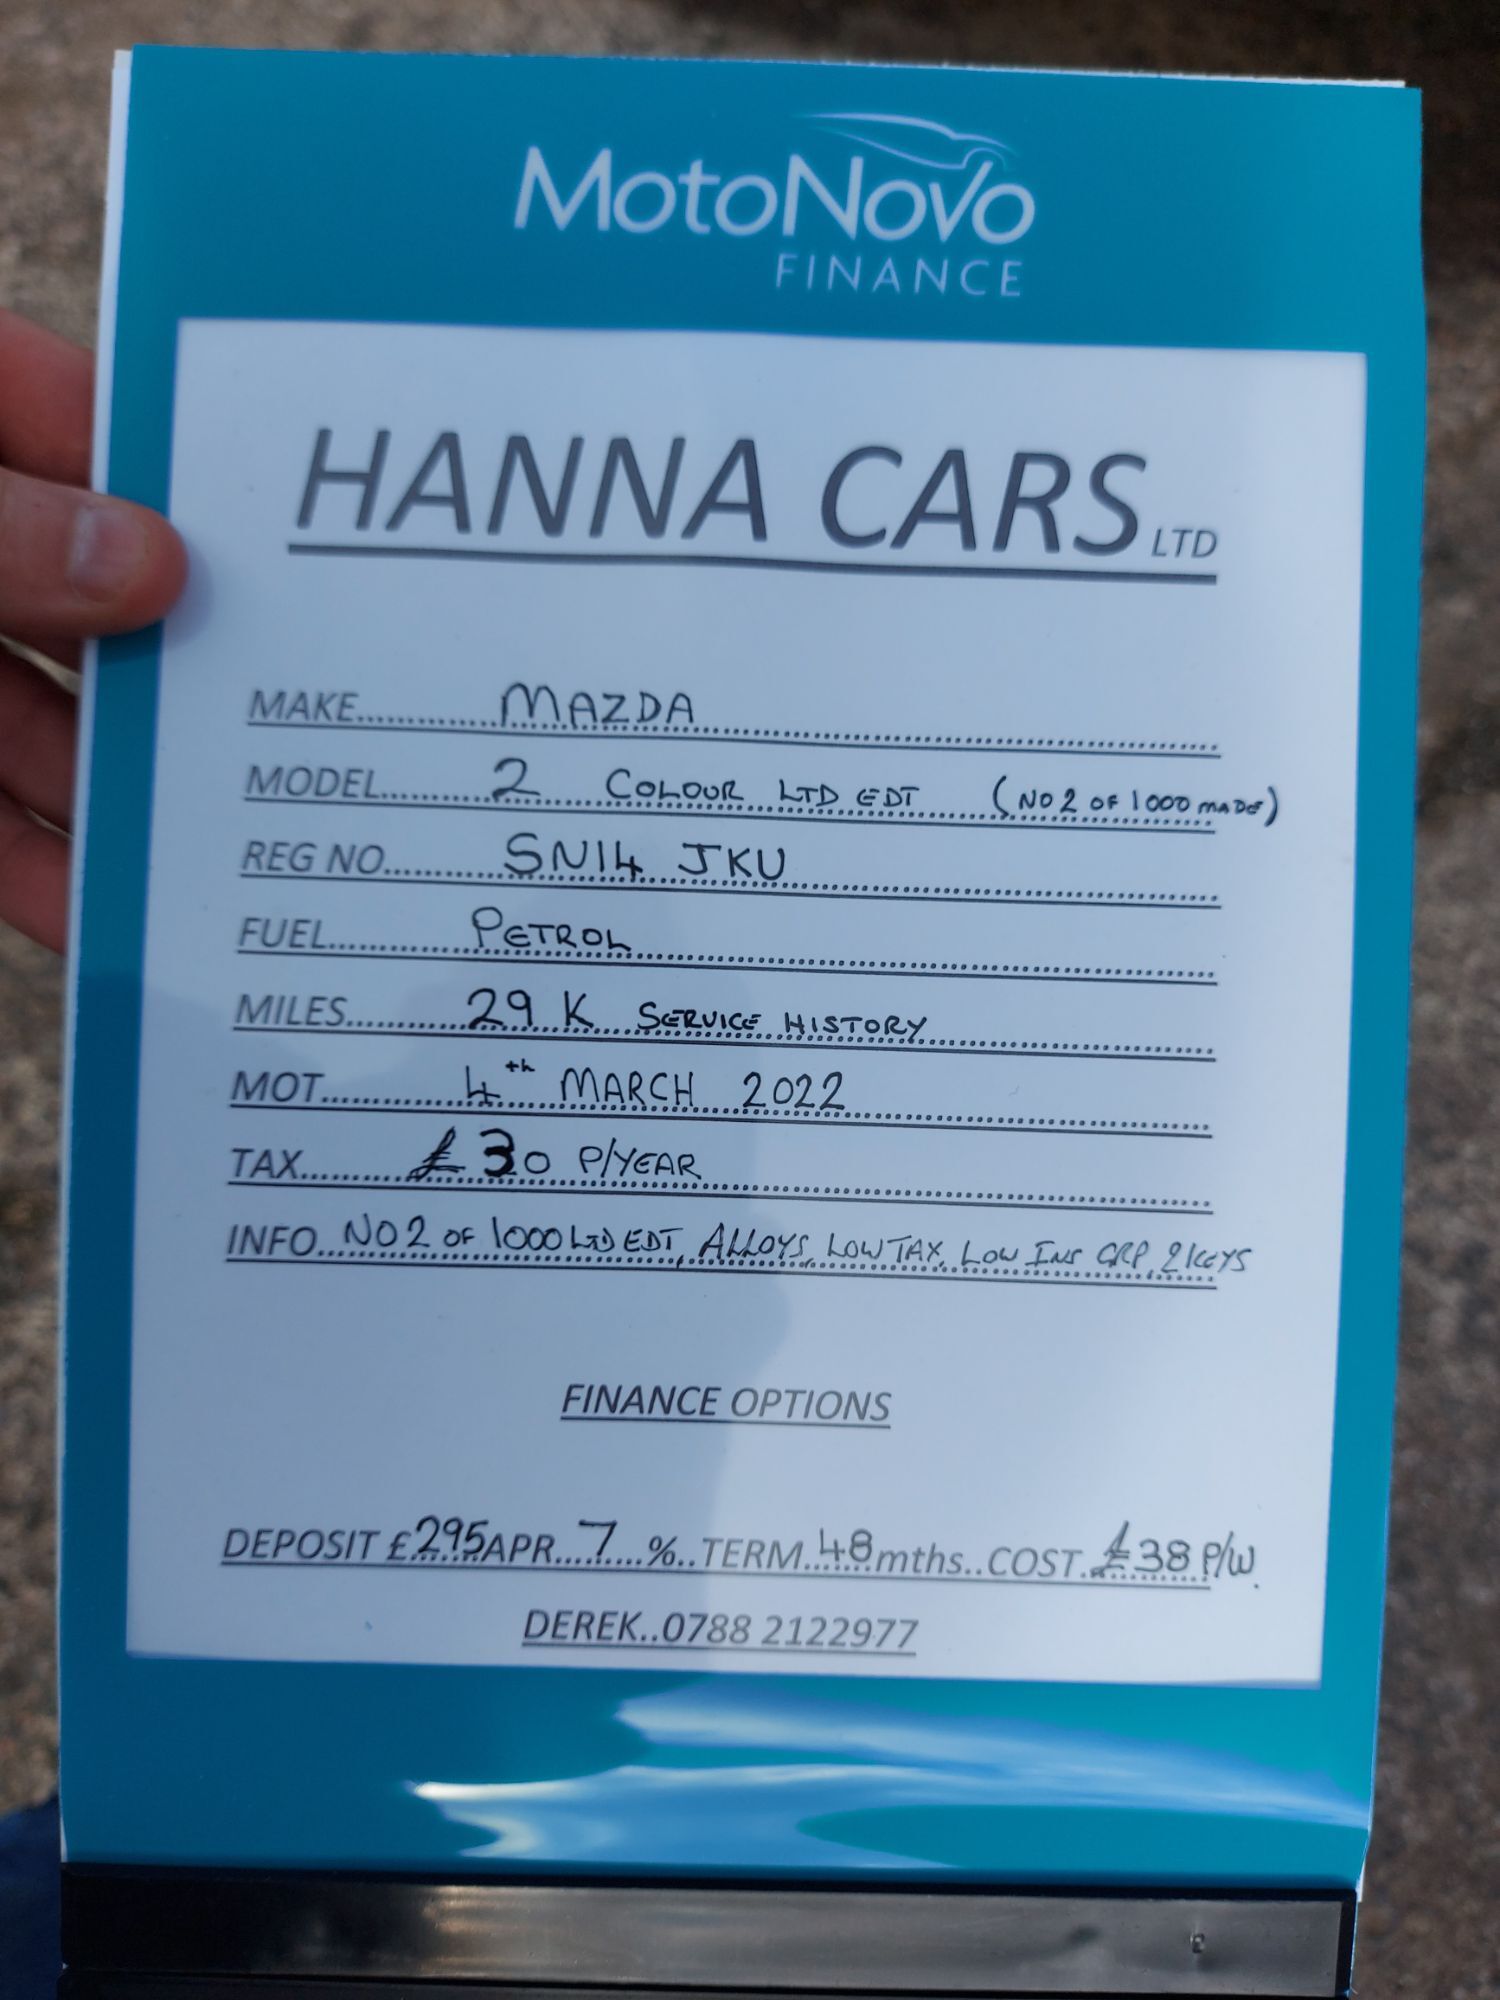 MotoNovo
FINANCE
HANNA CARS LTD
MAKE.............MAZDA
MODEL.......2 COLOUR LTD EDT (NO 2 OF 1000 MADE)
REG NO.........SN14 JKU
FUEL.............PETROL
MILES............29 K SERVICE HISTORY
MOT.............4th MARCH 2022
TAX...........£30 P/YEAR
INFO..NO 2 OF 1000 LTD EDT, ALLOYS, LOW TAX, LOW INS GRP, 2 KEYS
FINANCE OPTIONS
DEPOSIT £295 APR...7...%..TERM.48mths..COST.£38 P/W.
DEREK..0788 2122977